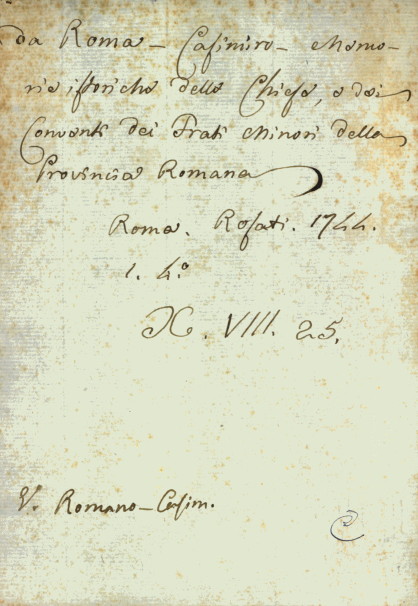 da Roma - Casimiro - Memo-
rie istoriche delle Chiese, e dei
Conventi dei Frati Minori della
Provincia Romana
Roma. Rosati. 1744.
1. 4.°
X. VIII. 25.
V. Romano - Casim.